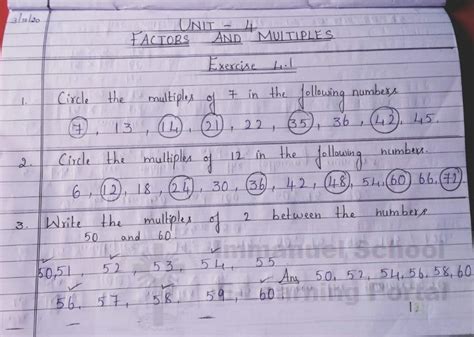 3/10/20
UNIT - 4
FACTORS AND MULTIPLES
Exercise 4.1
1. Circle the multiples of 7 in the following numbers.
7, 13, 14, 21, 22, 35, 36, 42, 45.
2. Circle the multiples of 12 in the following numbers.
6, 12, 18, 24, 30, 36, 42, 48, 54, 60 66, 72
3. Write the multiples of 2 between the numbers
50 and 60
50, 51, 52, 53, 54, 55
Ans 50, 52, 54, 56, 58, 60
56, 57, 58, 59, 60
Emmanuel School
Learning Portal